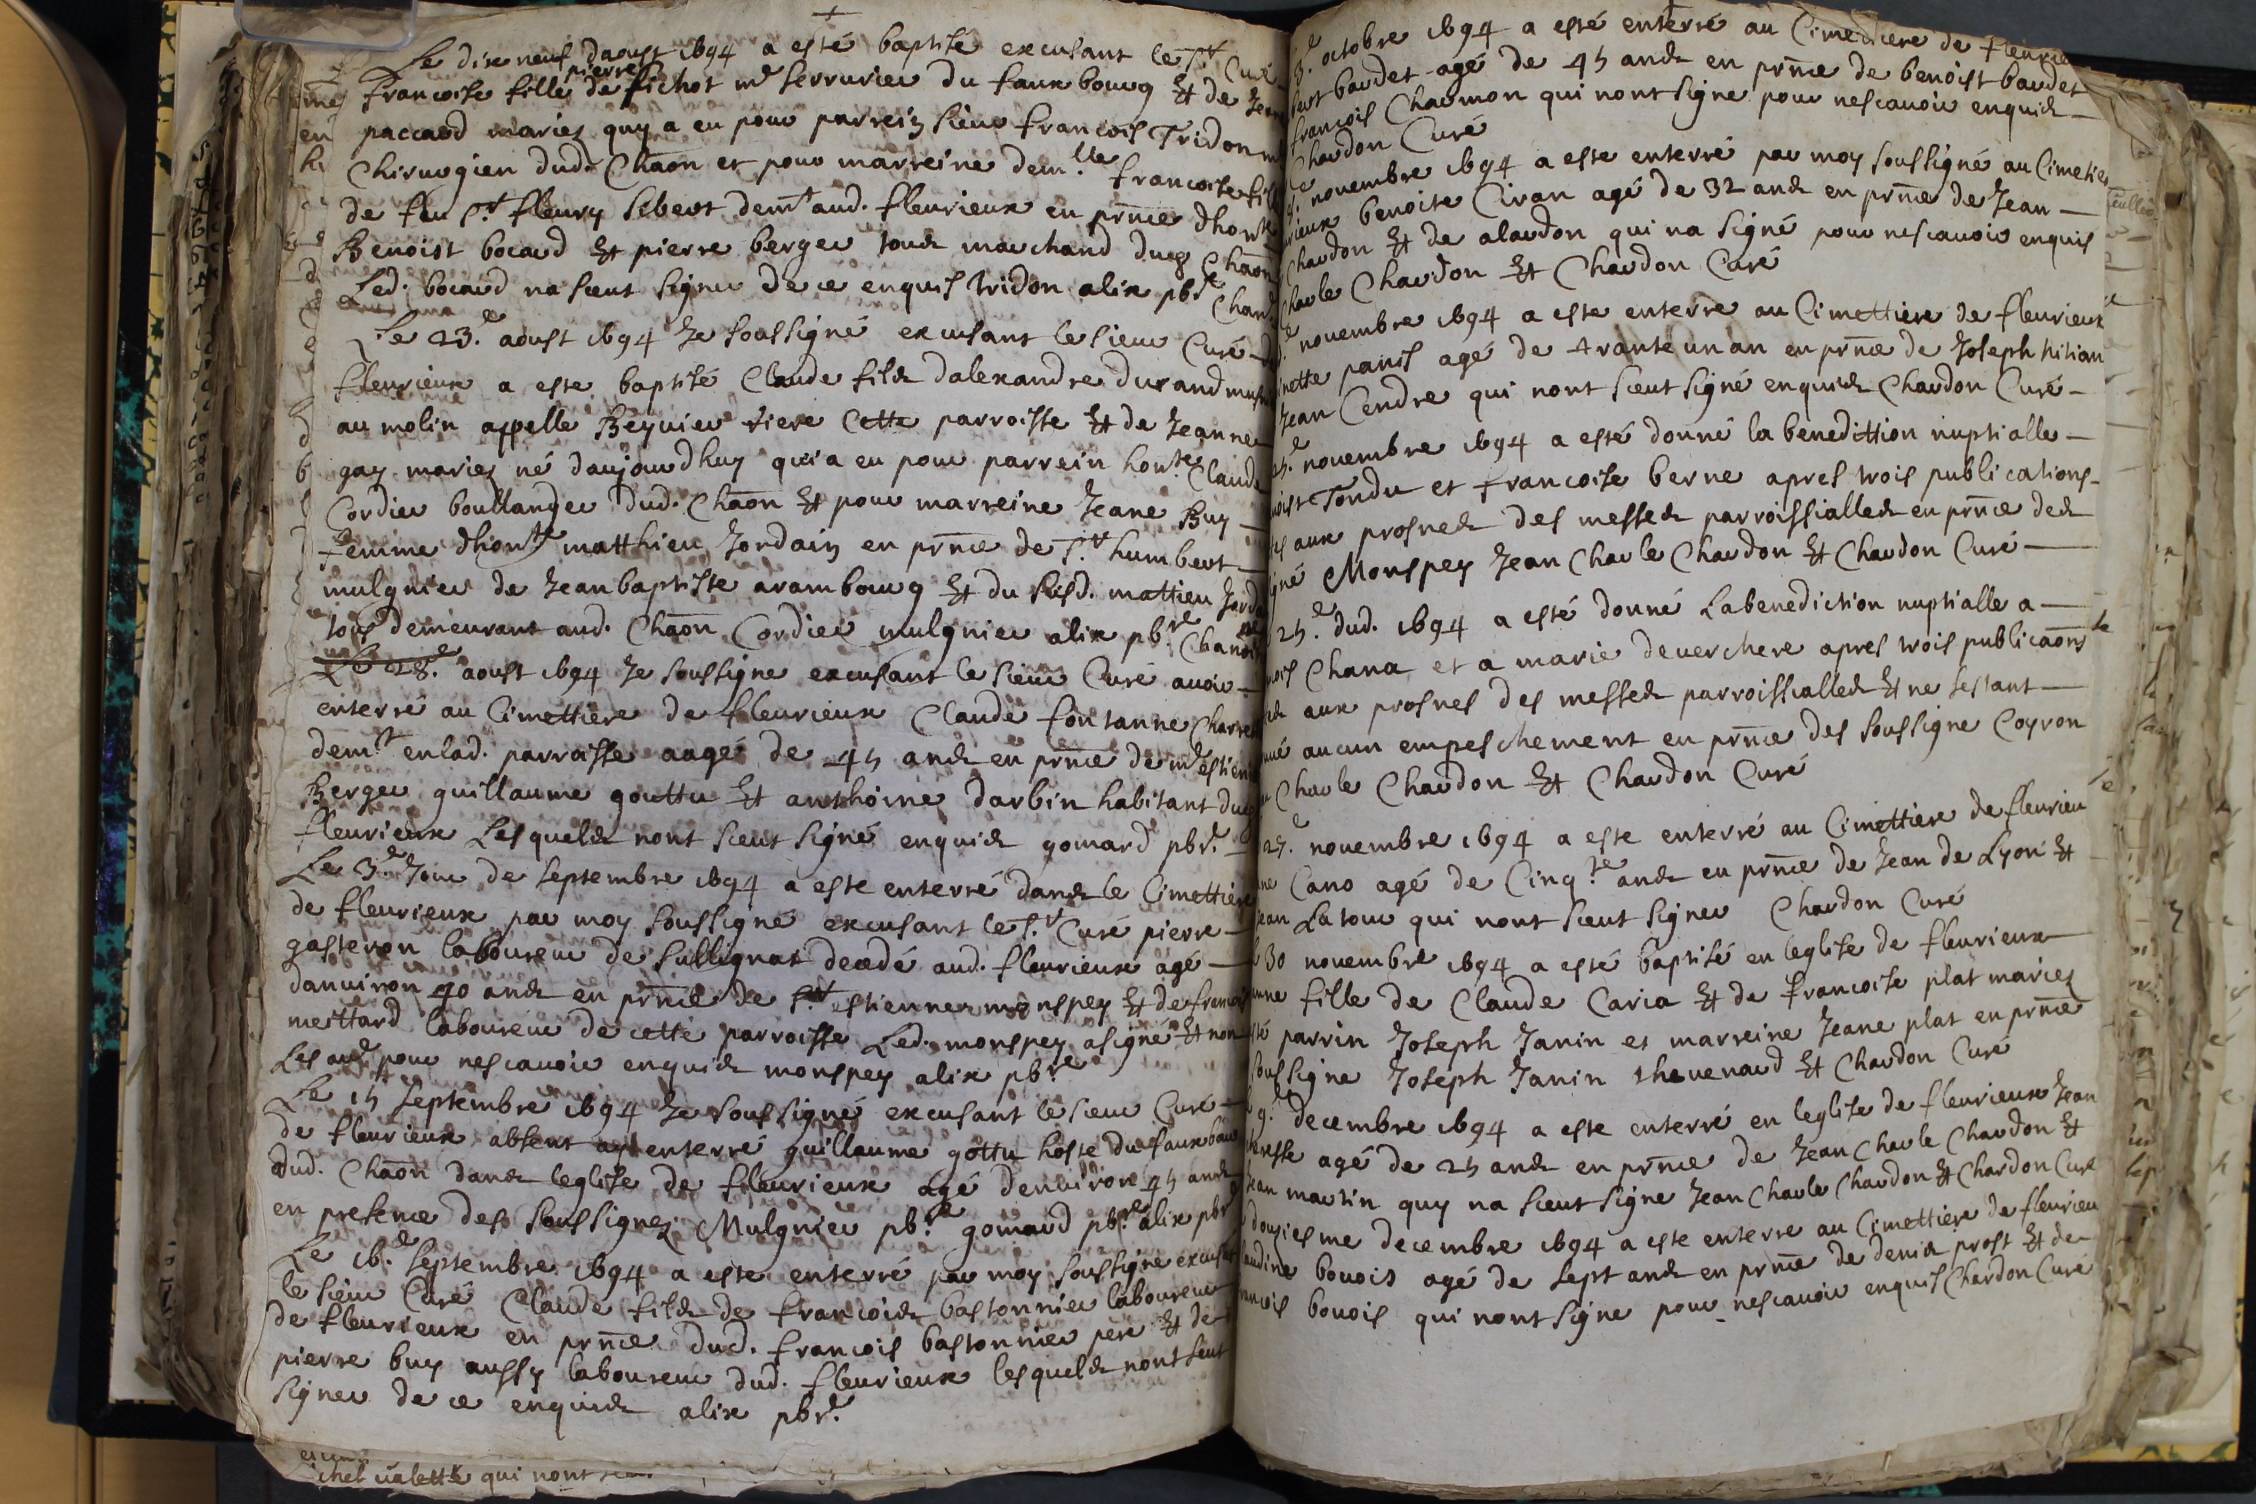 Le dix neuf daoust 1694 a esté baptisé excusant le Sr Curé
francoise fille de pierre fichot md serrurier du faux bourg Et de Jeanne
paccard mariez quy a eu pour parrein sieur francois Tridon
Chirurgien dud. Chaon et pour marreine demlle francoise fille
de feu Sr fleury Sibert demt aud. fleurieux en prnce dhonte
Benoist bocard Et pierre berger tous marchand dud Chaon
Led. bocard na sceut signer de ce enquis tridon alix pbre Chan
Le 23e aoust 1694 Je soussigné excusant le sieur Curé
fleurieux a este baptisé Claude fils dalexandre durand
au molin appelle Beyvier riere Cette parroisse Et de Jeanne
gay mariez né daujourdhuy qui a eu pour parrein honte Claude
Cordier boullanger dud. Chaon Et pour marreine Jeane Buy
femme dhonte matthieu Jordain en prnce de Sr humbert
mulgnier de Jean baptiste arambourg Et du susd. mattieu
tous demeurant aud. Chaon Cordier mulgnier alix pbre
Le 28e aoust 1694 Je soussigne excusant le sieur Curé avoir
enterré au Cimettiere de fleurieux Claude fontanne
demt en lad. parroisse aagé de 45 ans en prnce de md
Berger guillaume gouttu Et anthoine darbin habitant
fleurieux Lesquels nont sceut signé enquis gomard pbre
Le 3e Jour de septembre 1694 a este enterré dans le Cimettiere
de fleurieux par moy soussigné excusant le Sr Curé pierre
gasteron laboureur de sullignat decedé aud. fleurieux agé
danviron 40 ans en prnce de Sr estienne monspey Et de
mettard laboureur de cette parroisse Led. monspey a signé Et non
Les aud. pour nescavoir enquis monspey alix pbre
Le 15 septembre 1694 Je soussigné excusant le sieur Curé
de fleurieux absent ay enterré guillaume gottu hoste du faux bour
dud. Chaon dans leglise de fleurieux agé denviron 45 ans
en presence des soussignez Mulgnier pbre gomard pbre alix pbre
Le 16e septembre 1694 a este enterré par moy soussigné excusant
le sieur Curé Claude fils de francois bastonnier laboureur
de fleurieux en prnce dud. francois bastonnier pere Et de
pierre buy aussy laboureur dud. fleurieux lesquels nont seut
signer de ce enquis alix pbre
octobre 1694 a esté enterré au Cimettiere de fleurie
baudet agé de 45 ans en prnce de benoist baudet
francois Charmon qui nont signe pour nescavoir enquis
Chardon Curé
novembre 1694 a este enterré par moy soussigné au Cimetie
benoite Ciran agé de 32 ans en prnce de Jean
Chardon Et de alardon qui na signé pour nescavoir enquis
Charle Chardon Et Chardon Curé
novembre 1694 a este enterre au Cimettiere de fleurieux
paris agé de trante un an en prnce de Joseph
Jean Cendre qui nont sceut signé enquis Chardon Curé
novembre 1694 a esté donné la benedittion nuptialle
Tondu et francoise berne apres trois publications
aux prosnes des messes parroissialles en prnce des
Monspey Jean Charle Chardon Et Chardon Curé
25e dud. 1694 a esté donné La benediction nuptialle a
Chana et a marie deverchere apres trois publicaons
aux prosnes des messes parroissialles Et ne sestant
aucun empeschement en prnce des soussigne Coyron
Charle Chardon Et Chardon Curé
novembre 1694 a este enterré au Cimettiere de fleurieu
Cano agé de Cinqte ans en prnce de Jean de Lyon Et
Jean La tour qui nont sceut signer Chardon Curé
30 novembre 1694 a esté baptisé en leglise de fleurieux
fille de Claude Caria Et de francoise plat mariez
parrin Joseph Janin et marreine Jeane plat en prnce
soussigne Joseph Janin thevenard Et Chardon Curé
9e decembre 1694 a este enterré en leglise de fleurieux Jean
agé de 25 ans en prnce de Jean Charle Chardon Et
Jean martin quy na sceut signe Jean Charle Chardon Et Chardon Curé
dousiesme decembre 1694 a este enterre au Cimettiere de fleurieu
bovois agé de sept ans en prnce de denis prost Et de
bovois qui nont signe pour nescavoir enquis Chardon Curé
chel valette qui nont